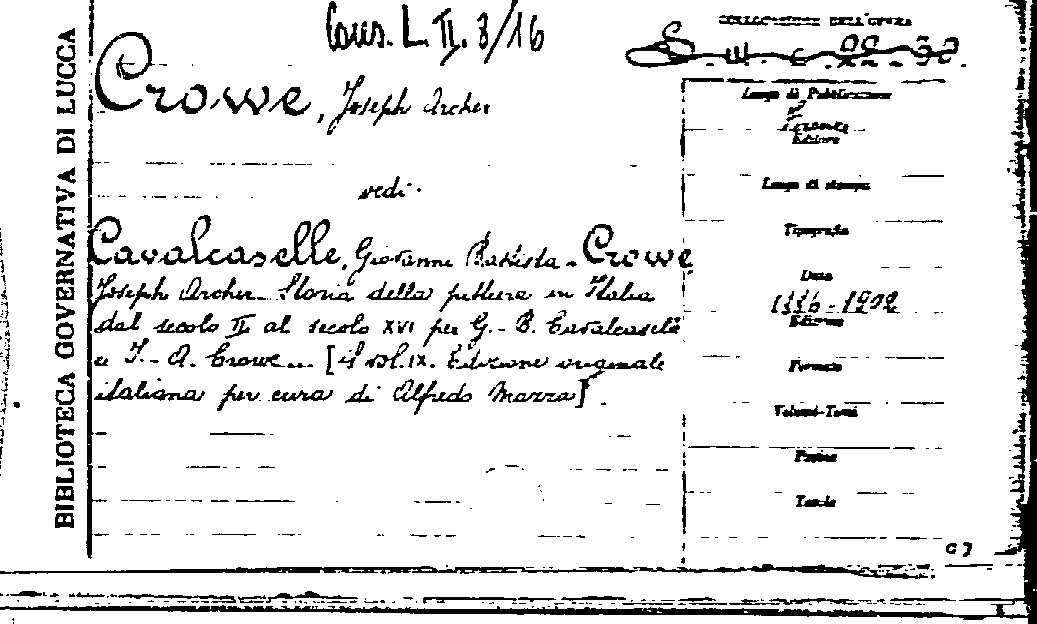 Cons. L. II. 3/16
COLLOCAZIONE DELL'OPERA
BIBLIOTECA GOVERNATIVA DI LUCCA
Crowe, Joseph Archer
vedi.
Cavalcaselle, Giovanni Battista - Crowe
Joseph Archer - Storia della pittura in Italia
dal secolo II al secolo XVI per G. - B. Cavalcaselle
e J. - A. Crowe ... [il vol. IX. Edizione originale
italiana per cura di Alfredo Mazza]
Luogo di Pubblicazione
Firenze
Editore
Luogo di stampa
Tipografia
Data
1886-1902
Edizione
Formato
Volumi-Tomi
Pagine
Tavole